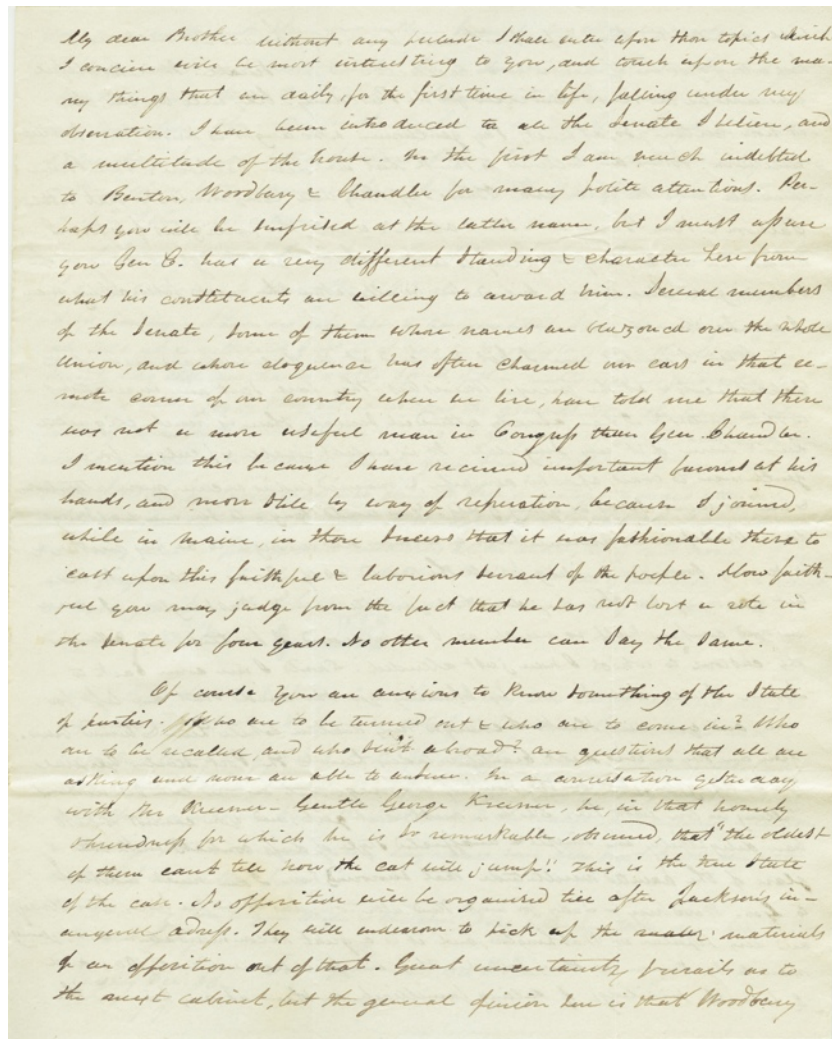 My dear Brother without any prelude I shall enter upon those topics which
I conceive will be most interesting to you, and touch upon the ma-
ny things that are daily, for the first time in life, falling under my
observation. I have been introduced to all the Senate I believe, and
a multitude of the house. In the first I am much indebted
to Benton, Woodbury & Chandler for many polite attentions. Per-
haps you will be surprised at the latter name, but I must assure
you Gen C. has a very different standing & character here from
what his constituents are willing to award him. Several members
of the Senate, some of them whose names are blazoned over the whole
Union, and whose eloquence has often charmed our ears in that re-
mote corner of our country where we live, have told me that there
was not a more useful man in Congress than Gen. Chandler.
I mention this because I have received important favours at his
hands, and more still by way of reparation, because I joined,
while in Maine, in those sneers that it was fashionable there to
cast upon this faithful & laborious servant of the people. How faith-
ful you may judge from the fact that he has not lost a vote in
the Senate for four years. No other member can say the same.
Of course you are anxious to know something of the State
of parties. Who are to be turned out & who are to come in? Who
are to be recalled, and who sent abroad? are questions that all are
asking and none are able to answer. In a conversation yesterday
with Mr Kremer - Gentle George Kremer, he, in that homely
shrewdness for which he is so remarkable, observed, that "the oldest
of them can't tell how the cat will jump"! This is the true State
of the case. No opposition will be organised till after Jackson's in-
augural adress. They will endeavour to pick up the materials
of an opposition out of that. Great uncertainty prevails as to
the next cabinet, but the general opinion here is that Woodbury